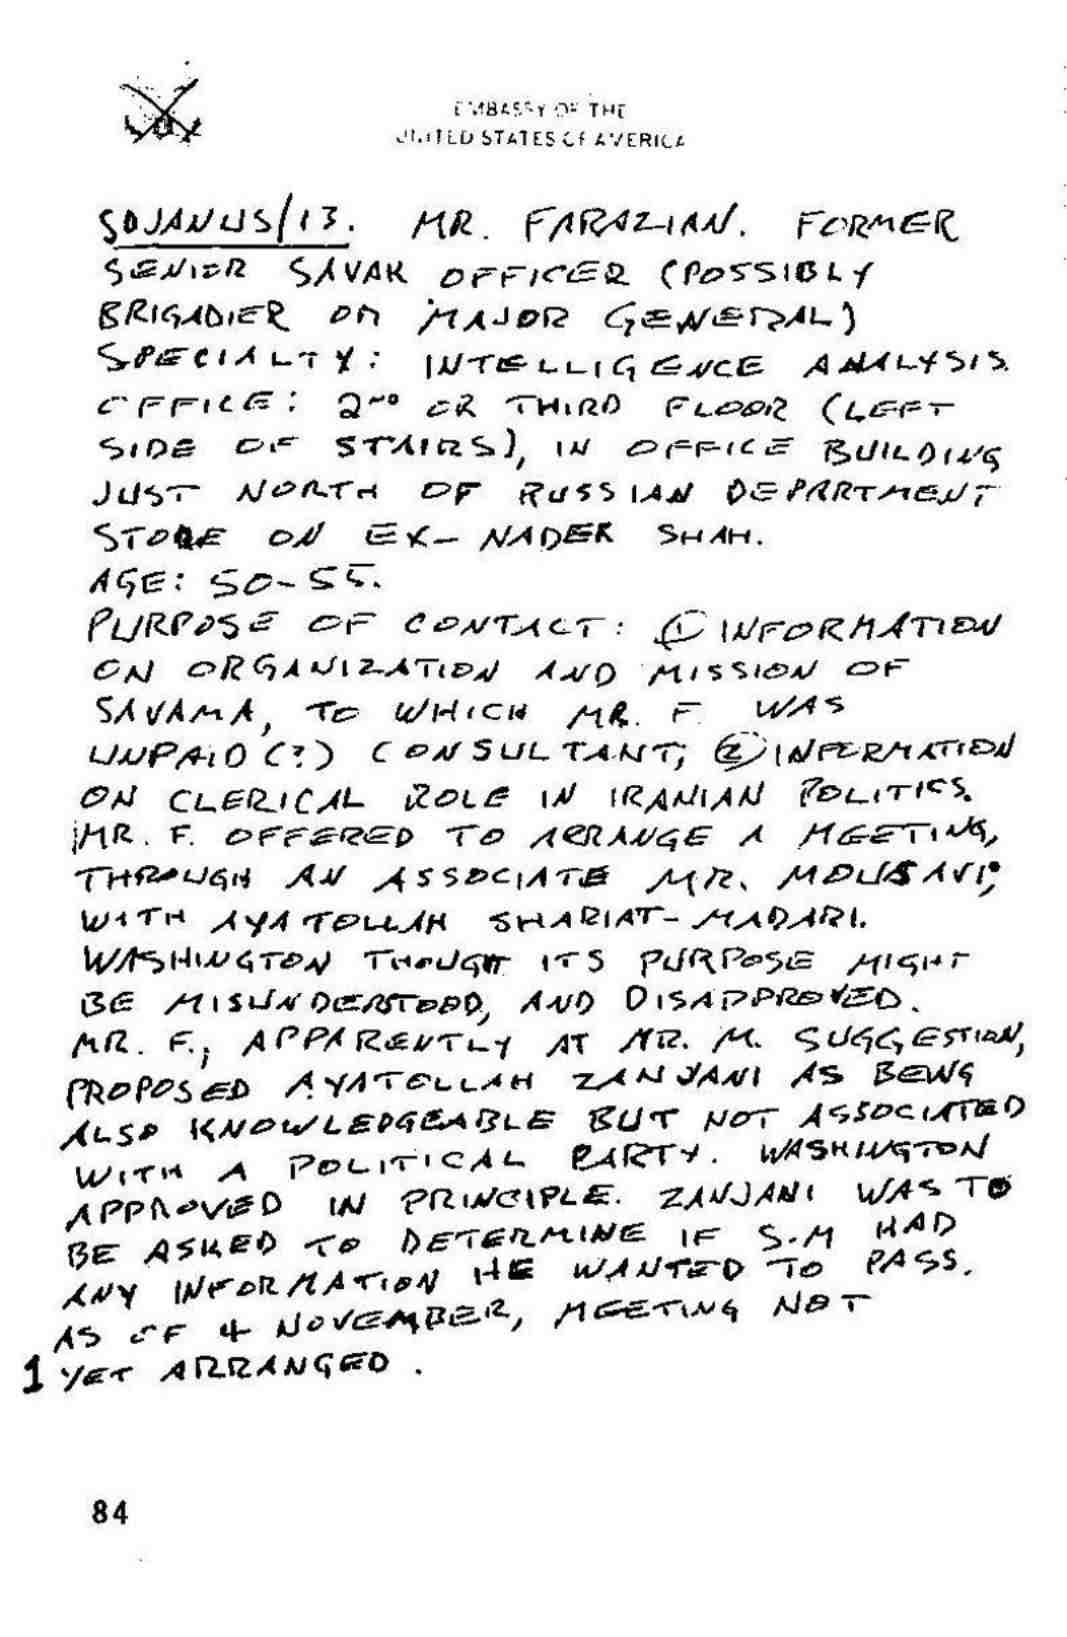 EMBASSY OF THE
UNITED STATES OF AMERICA
SDJANUS/13. MR. FARAZIAN. FORMER
SENIOR SAVAK OFFICER (POSSIBLY
BRIGADIER OR MAJOR GENERAL)
SPECIALTY: INTELLIGENCE ANALYSIS.
OFFICE: 2ND OR THIRD FLOOR (LEFT
SIDE OF STAIRS), IN OFFICE BUILDING
JUST NORTH OF RUSSIAN DEPARTMENT
STORE ON EX-NADER SHAH.
AGE: 50-55.
PURPOSE OF CONTACT: ① INFORMATION
ON ORGANIZATION AND MISSION OF
SAVAMA, TO WHICH MR. F. WAS
UNPAID (?) CONSULTANT; ② INFORMATION
ON CLERICAL ROLE IN IRANIAN POLITICS.
MR. F. OFFERED TO ARRANGE A MEETING,
THROUGH AN ASSOCIATE MR. MOUSAVI,
WITH AYATOLLAH SHARIAT-MADARI.
WASHINGTON THOUGHT ITS PURPOSE MIGHT
BE MISUNDERSTOOD, AND DISAPPROVED.
MR. F., APPARENTLY AT MR. M. SUGGESTION,
PROPOSED AYATOLLAH ZANJANI AS BEING
ALSO KNOWLEDGEABLE BUT NOT ASSOCIATED
WITH A POLITICAL PARTY. WASHINGTON
APPROVED IN PRINCIPLE. ZANJANI WAS TO
BE ASKED TO DETERMINE IF S-M HAD
ANY INFORMATION HE WANTED TO PASS.
AS OF 4 NOVEMBER, MEETING NOT
1 YET ARRANGED.
84